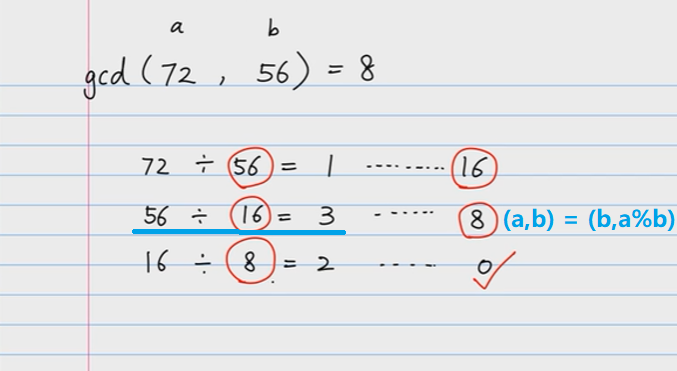 a b
gcd ( 72 , 56 ) = 8
72 ÷ 56 = 1 ········· 16
56 ÷ 16 = 3 ······ 8 (a,b) = (b,a%b)
16 ÷ 8 = 2 ····· 0 ✓